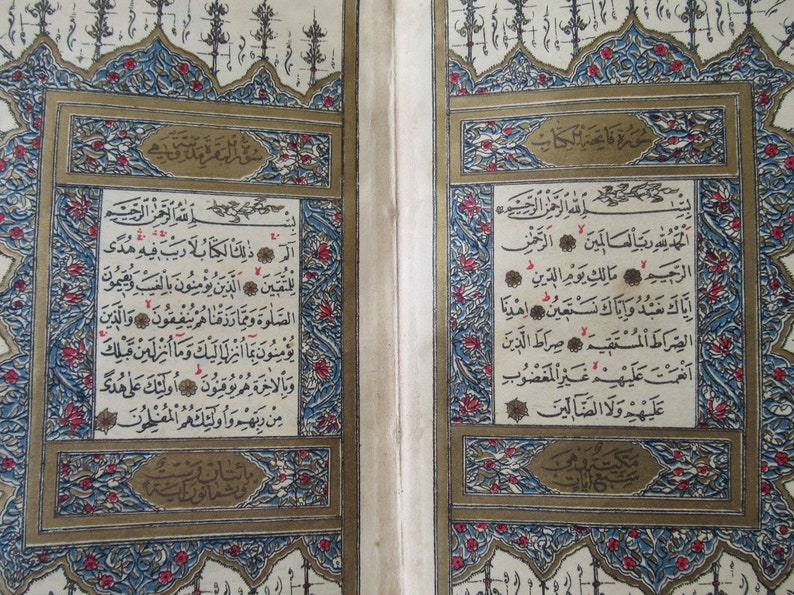 سورة فاتحة الكتاب
بسم الله الرحمن الرحيم
الحمد لله رب العالمين الرحمن
الرحيم مالك يوم الدين
اياك نعبد واياك نستعين اهدنا
الصراط المستقيم صراط الذين
انعمت عليهم غير المغضوب
عليهم ولا الضالين
مكية وهي
سبع آيات
سورة البقرة مدنية وهي
بسم الله الرحمن الرحيم
الم ذلك الكتاب لا ريب فيه هدى
للمتقين الذين يؤمنون بالغيب ويقيمون
الصلوة ومما رزقناهم ينفقون والذين
يؤمنون بما انزل اليك وما انزل من قبلك
وبالاخرة هم يوقنون اولئك على هدى
من ربهم واولئك هم المفلحون
مائتان وستة
وثمانون آية